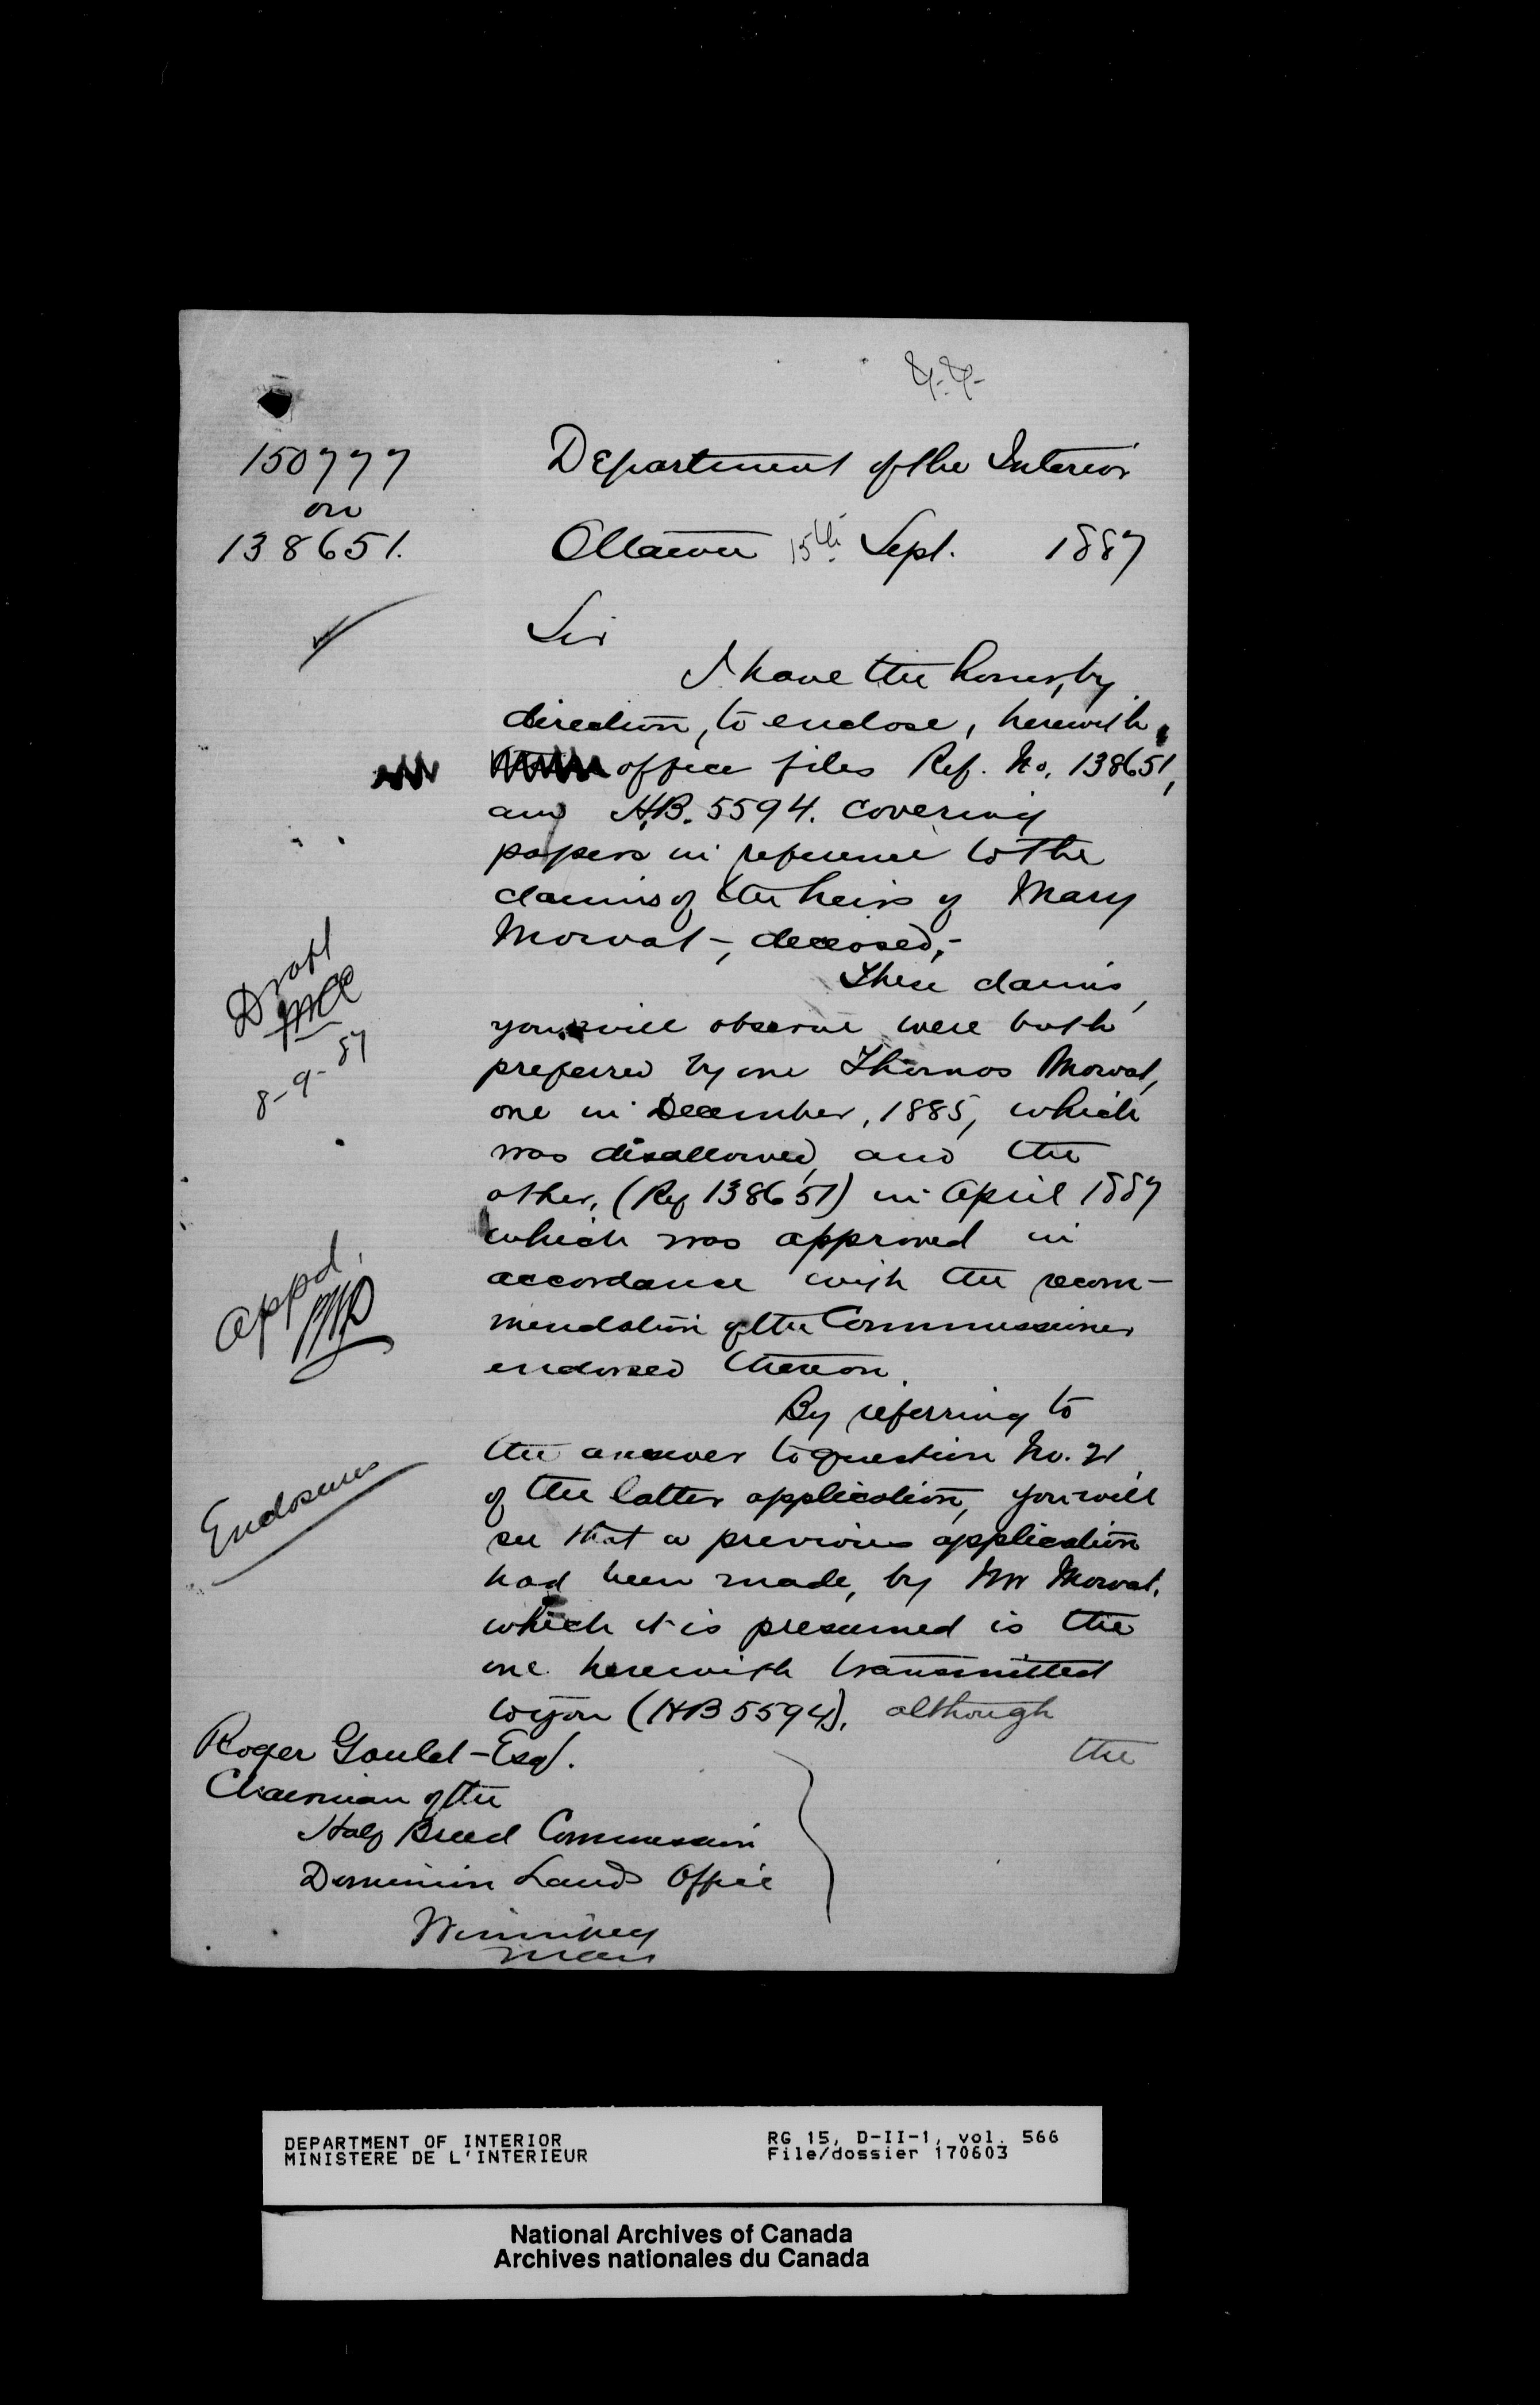 150777
on
138651.
Department of the Interior
Ottawa 15th Sept. 1887
Sir
I have the honor, by
direction, to enclose, herewith,
office files Ref. No. 138651,
and H.B. 5594. covering
papers in reference to the
claims of the heirs of Mary
Mowat, deceased,-
These claims,
you will observe were both
preferred by one Thomas Mowat,
one in December, 1885, which
was disallowed, and the
other, (Ref 138651) in April 1887
which was approved in
accordance with the recom-
mendation of the Commissioner
endorsed thereon.
By referring to
the answer to question No. 21
of the latter application, you will
see that a previous application
had been made, by Mr Mowat.
which it is presumed is the
one herewith transmitted
to you (HB 5594), although
the
Draft
8-9-87
appd.
Enclosures
Roger Goulet - Esq.
Chairman of the
Half Breed Commission
Dominion Lands Office
Winnipeg
Man
DEPARTMENT OF INTERIOR
MINISTERE DE L'INTERIEUR
RG 15, D-II-1, vol. 566
File/dossier 170603
National Archives of Canada
Archives nationales du Canada